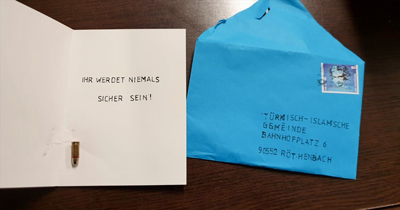 IHR WERDET NIEMALS
SICHER SEIN!
TÜRKISCH-ISLAMISCHE
GEMEINDE
BAHNHOFPLATZ 6
90552 RÖTHENBACH